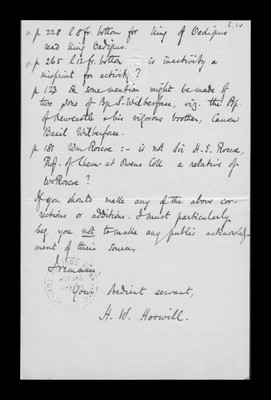 5.
x p 228 l 8 fr. bottom for King of Oedipus
read King Oedipus.
x p 265 l 12 fr. bottom is inactivity a
misprint for activity?
p 173 some mention might be made of
two sons of Bp S. Wilberforce, viz. the Bp.
of Newcastle & his vigorous brother, Canon
Basil Wilberforce.
x p 181 Wm Roscoe :- is not Sir H. E. Roscoe,
Prof. of Chem at Owens Coll a relative of
Wm Roscoe?
If you should make any of the above cor-
rections or additions, I must particularly
beg you not to make any public acknowledg-
ment of their source.
I remain,
Your obedient servant,
H. W. Horwill.